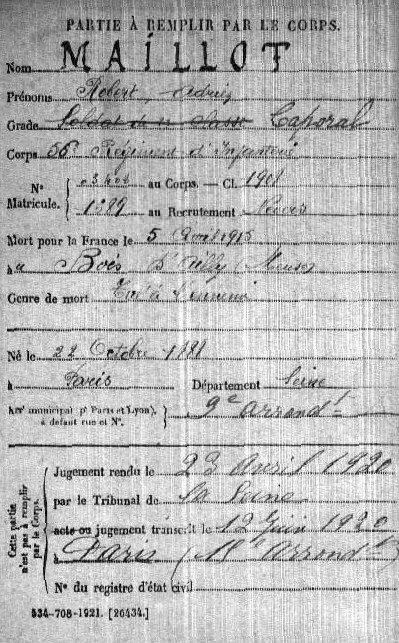 PARTIE À REMPLIR PAR LE CORPS.
Nom MAILLOT
Prénoms Robert, Adrien
Grade Soldat de 2e classe Caporal
Corps 56e Régiment d'Infanterie
N° Matricule. au Corps. — Cl. 1908
1889 au Recrutement Nevers
Mort pour la France le 5 Avril 1915
à Bois d'Ailly (Meuse)
Genre de mort Tué à l'ennemi
Né le 22 Octobre 1888
à Paris Département Seine
Arrt municipal (pr Paris et Lyon), à défaut rue et N°. 9e Arrondt
Cette partie n'est pas à remplir par le Corps.
Jugement rendu le 23 Avril 1920
par le Tribunal de la Seine
acte ou jugement transcrit le 12 Juin 1920
à Paris Arrondt
N° du registre d'état civil
534-708-1921. [26434.]